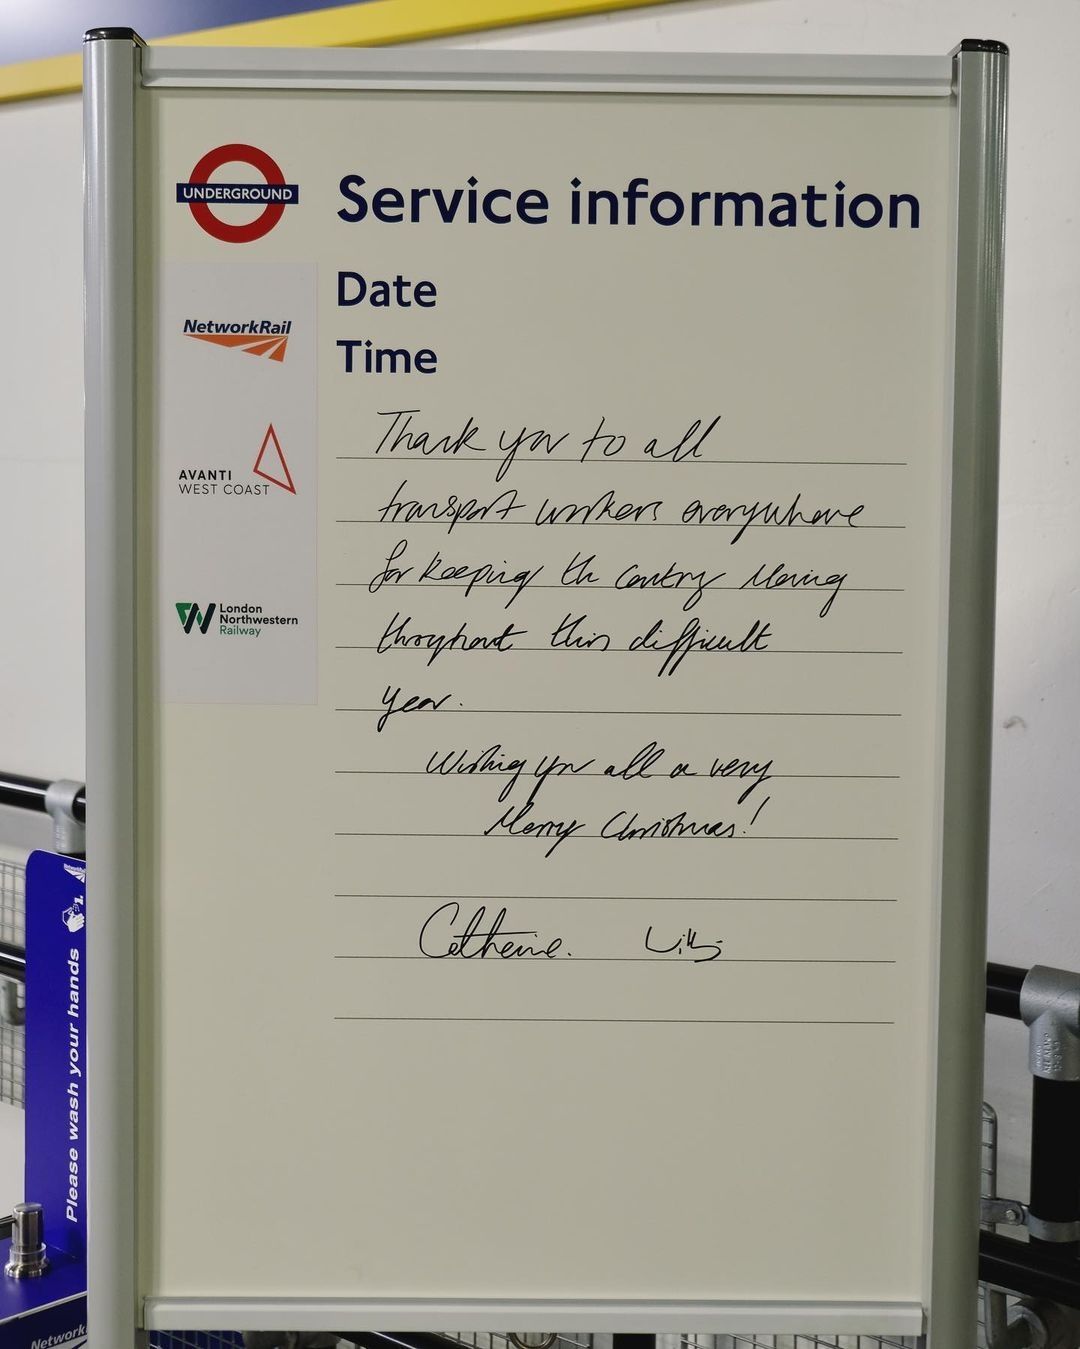 UNDERGROUND
Service information
Date
Time
NetworkRail
AVANTI
WEST COAST
London
Northwestern
Railway
Thank you to all
transport workers everywhere
for keeping the country Moving
throughout this difficult
year.
Wishing you all a very
Merry Christmas!
Catherine.
Please wash your hands
NetworkRail
Network